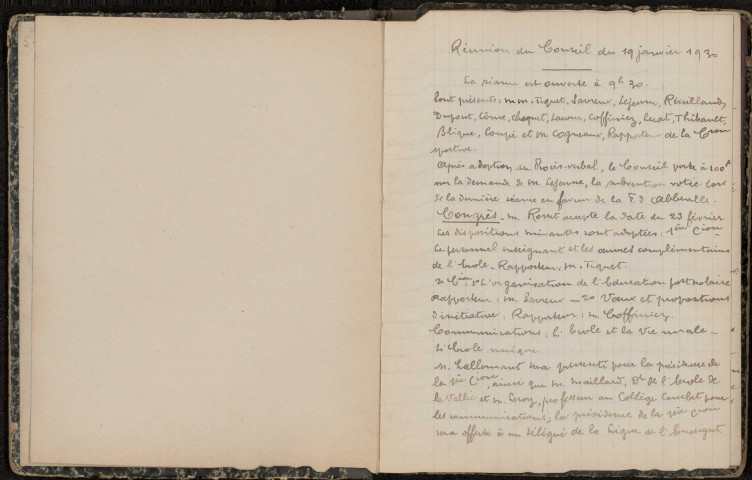 Réunion du Conseil du 19 janvier 1930
La séance est ouverte à 9h 30.
Sont présents : MM. Tiquet, Savreux, Lejeune, Réveillaud,
Dupont, Cônse, Choquet, Lawers, Coffiniez, Lucat, Thibault,
Blique, Coupé et M. Cogneaux, Rapporteur de la Cion
sportive.
Après adoption du Procès-verbal, le Conseil porte à 100f
sur la demande de M. Lejeune, la subvention votée lors
de la dernière séance en faveur de la F. d'Abbeville.
Congrès. M. accepte la date du 23 février
Les dispositions suivantes sont adoptées : 1ère Cion
Le personnel enseignant et les œuvres complémentaires
de l'École. Rapporteur. M. Tiquet.
2e Cion : 1° L'organisation de l'Éducation postscolaire
Rapporteur : M. Savreux — 2° Vœux et propositions
d'initiative. Rapporteur : M. Coffiniez.
Communications : L'École et la Vie rurale —
L'École unique.
M. Lallemant sera pressenti pour la présidence de
la 1ère Cion, ainsi que M. Maillard, Dr de l'École de
la Vallée et M. Leroy, professeur au Collège Courbet pour
les communications ; la présidence de la 2ème Cion
sera offerte à un délégué de la Ligue de l'Enseignt